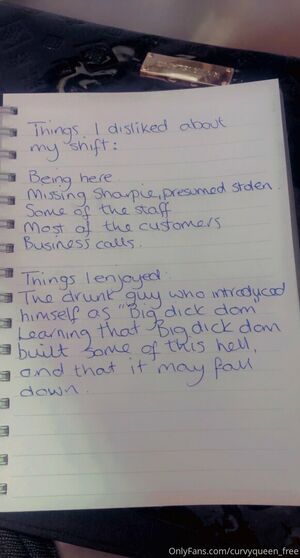 Things I disliked about
my shift:
Being here.
Missing Sharpie, presumed stolen.
Some of the staff
Most of the customers
Business calls.
Things I enjoyed:
The drunk guy who introduced
himself as "Big dick dom"
Learning that Big dick dom
built some of this hell,
and that it may fall
down.
OnlyFans.com/curvyqueen_free